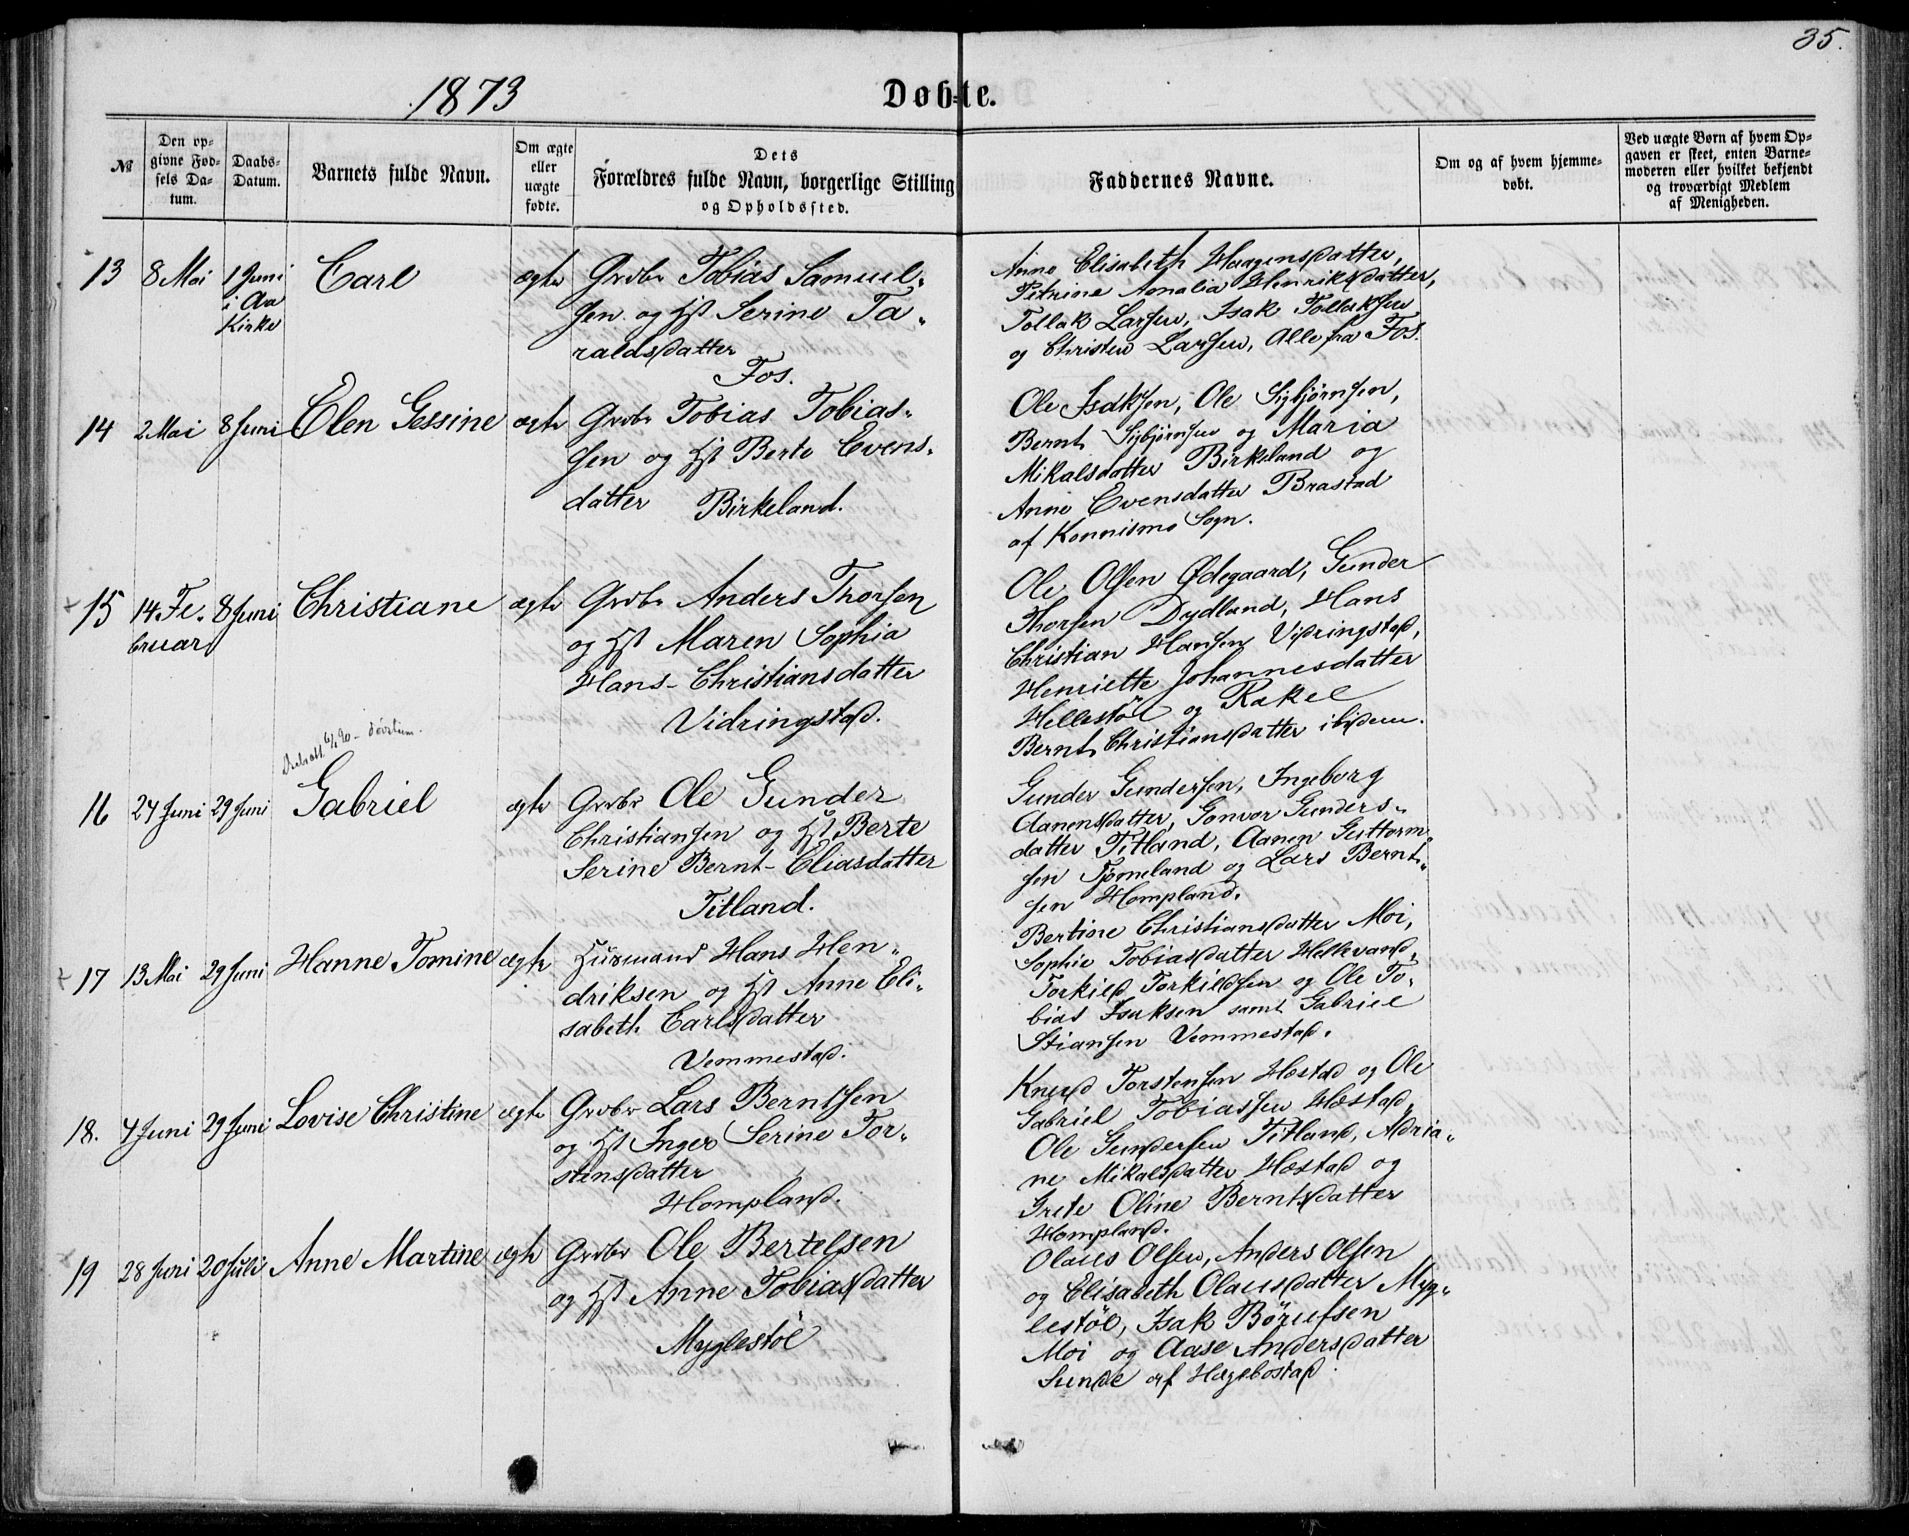 35.
1873
Døbte.
№
Den op-
givne Fød-
sels Da-
tum.
Daabs-
Datum.
Barnets fulde Navn.
Om ægte
eller
uægte
fødte.
Dets
Forældres fulde Navn, borgerlige Stilling
og Opholdssted.
Faddernes Navne.
Om og af hvem hjemme-
døbt.
Ved uægte Børn af hvem Op-
gaven er skeet, enten Barne-
moderen eller hvilket bekjendt
og troværdigt Medlem
af Menigheden.
13
8 Mai
1 Juni
i Aa
Kirke
Carl
ægte
Grdbr Tobias Samuel-
sen og Hst Serine Ta-
raldsdatter
Fos.
Anne Elisabeth Haagensdatter,
Petrine Amalia Henriksdatter,
Tollak Larsen, Isak Tollaksen
og Christen Larsen, Alle fra Fos.
14
2 Mai
8 Juni
Elen Gessine
ægte
Grdbr Tobias Tobias-
sen og Hst Berte Evens-
datter Birkeland.
Ole Isaksen, Ole Sigbjørnsen,
Bernt Sigbjørnsen og Maria
Mikalsdatter Birkeland og
Anne Evensdatter Brastad
af Konnismo Sogn.
15
14. Fe-
bruar
8 Juni
Christiane
ægte
Grdbr Anders Thorsen
og Hst Maren Sophia
Hans-Christiansdatter
Vidringstad.
Ole Olsen Ødegaard, Gunder
Thorsen Dydland, Hans
Christian Hansen Vidringstad,
Henriette Johannesdatter
Hellestøl og Rakel
Bernt Christiansdatter ibidem.
16
24 Juni
29 Juni
Gabriel
ægte
Grdbr Ole Gunder
Christiansen og Hst Berte
Serine Bernt-Eliasdatter
Titland.
Gunder Gundersen, Ingeborg
Aanensdatter, Gonvor Gunders-
datter Titland, Aanen Guttorm-
sen Tjømeland og Lars Bernt-
sen Hompland.
17
13 Mai
29 Juni
Hanne Tomine
ægte
Husmand Hans Hen-
driksen og Hst Anne Eli-
sabeth Carlsdatter
Vemmestad.
Bertine Christiansdatter Moi,
Sophie Tobiasdatter Hellevand,
Torkild Torkildsen og Ole To-
bias Isaksen samt Gabriel
Stiansen Vemmestad.
18.
4 Juni
29 Juni
Lovise Christine
ægte
Grdbr Lars Berntsen
og Hst Inger Serine Tor-
stensdatter
Hompland.
Knud Torstensen Hæstad og Ole
Gabriel Tobiassen Hæstad,
Ole Gundersen Titland, Adria-
ne Mikalsdatter Hæstad og
Grete Oline Berntsdatter
Hompland.
19
28 Juni
20 Juli
Anne Martine
ægte
Grdbr Ole Bertelsen
og Hst Anne Tobiasdatter
Myglestøl
Olaus Olsen, Anders Olsen
og Elisabeth Olausdatter Myg-
lestøl, Isak Børufsen
Moi og Aase Andersdatter
Sunde af Hægebostad.